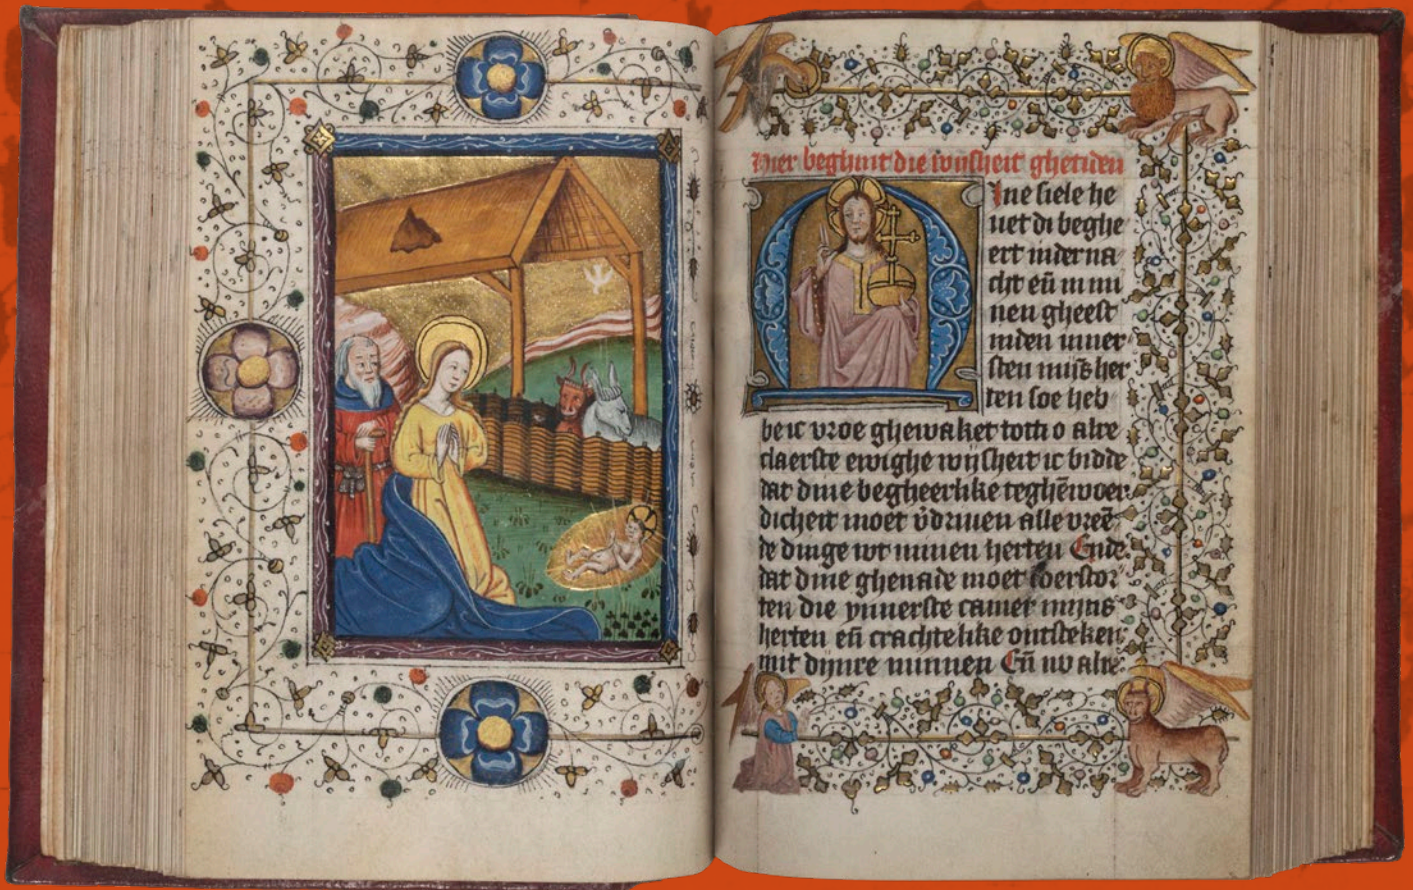 Hier beghint die wijsheit ghetiden
Mine siele he
uet di beghe
ert inder na
cht eñ in mi
nen gheest
inden inner
sten mijs her
ten soe heb
be ic vroe ghewaket tott i o alre
claerste ewighe wijsheit ic bidde
dat dine begheerlike teghēwoer
dicheit moet v̄driuen alle vreē
de dinge wt minen herten Ende
dat dine ghenade moet doerstor
ten die ynnerste camer mijns
herten eñ crachtelike ontsteken
mit dijnre minnen Eñ nv alre